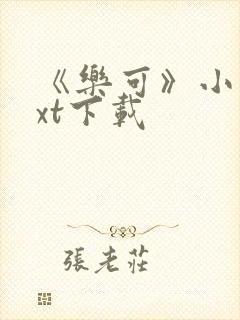 《樂可》小
xt下載
張老莊